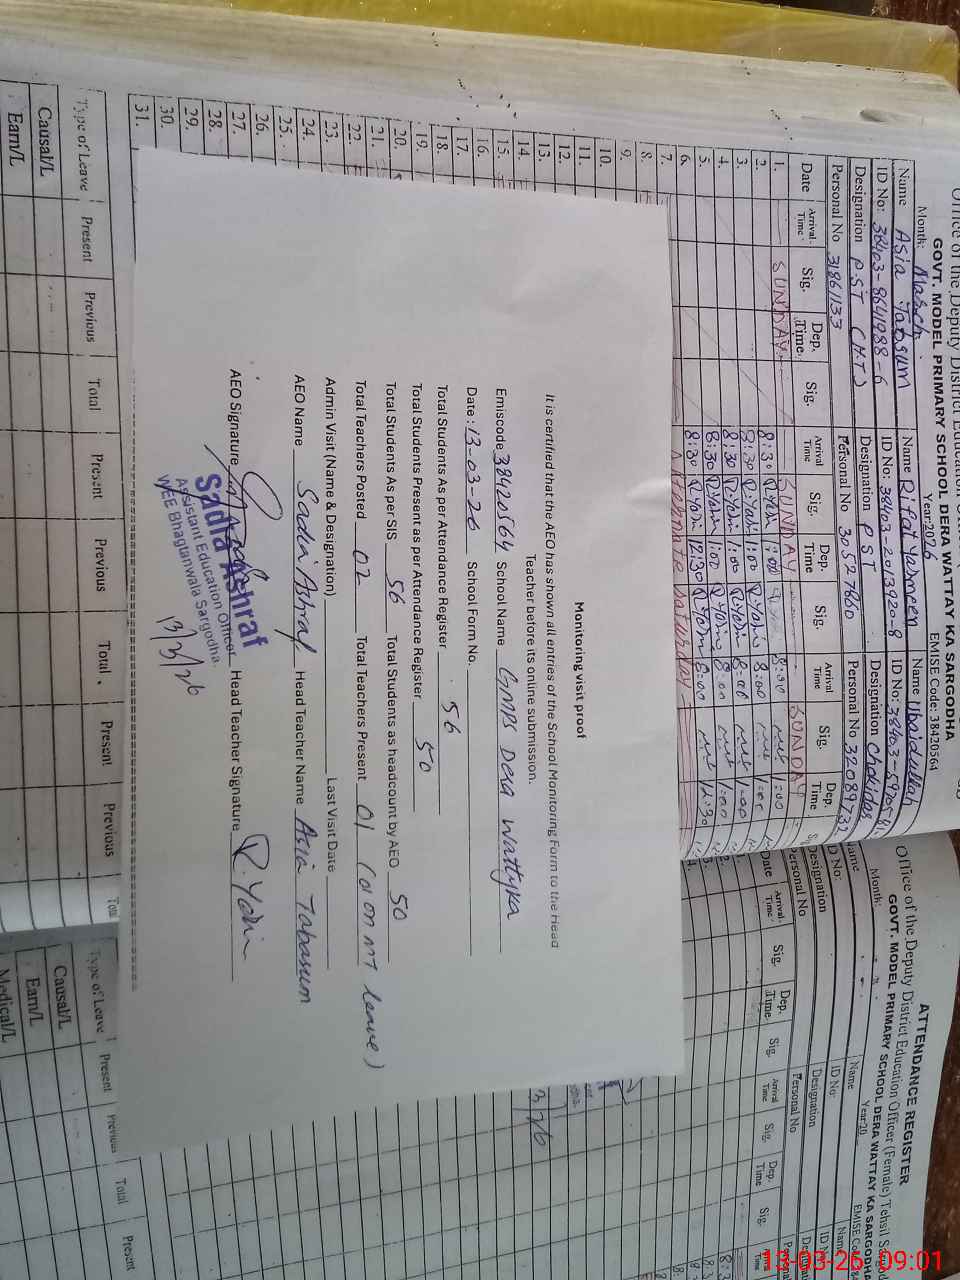 GOVT. MODEL PRIMARY SCHOOL DERA WATTAY KA SARGODHA
Month: March Year:2026 EMISE Code: 38420564
Name Asia Tabsum Name Rifat Yasmeen Name Ubaidullah
ID No: 38403-8641988-6 ID No: 38403-2013920-8 ID No:
Designation P.ST (H.T) Designation P ST Designation Chokidar
Personal No 31861133 Personal No 30527660 Personal No 32089732
Date Arrival Time Sig. Dep. Time Sig. Arrival Time Sig. Dep. Time Sig. Arrival Time Sig. Dep. Time
1. SUNDAY SUNDAY SUNDAY
2. 8:30 1:00 8:00 1:00
3. 8:30 1:00 8:00 1:00
4. 8:30 1:00 8:00 1:00
5. 8:30 1:00 8:00 1:00
6. 8:30 12:30 8:00 12:30
7. Alternate Saturday
8.
9.
10.
11.
12.
13.
14.
15.
16.
17.
18.
19.
20.
21.
22.
23.
24.
25.
26.
27.
28.
29.
30.
31.
Type of Leave Present Previous Total Present Previous Total Present Previous Total
Causal/L
Earn/L
Monitoring visit proof
It is certified that the AEO has shown all entries of the School Monitoring Form to the Head
Teacher before its online submission.
Emiscode 38420564 School Name GMPS Dera Wattyka
Date: 13-03-26 School Form No.
Total Students As per Attendance Register 56
Total Students Present as per Attendance Register 50
Total Students As per SIS 56 Total Students as headcount by AEO 50
Total Teachers Posted 02 Total Teachers Present 01 (01 on MT leave)
Admin Visit (Name & Designation) Last Visit Date
AEO Name Sadia Ashraf Head Teacher Name Asia Tabasum
AEO Signature Head Teacher Signature R.Yasin
Sadia Ashraf
Assistant Education Officer
WEE Bhagtanwala Sargodha.
13/3/26
ATTENDANCE REGISTER
Office of the Deputy District Education Officer (Female) Tehsil
GOVT. MODEL PRIMARY SCHOOL DERA WATTAY KA SARGODHA
Month: Year:20 EMISE
Name Name
ID No: ID No:
Designation Designation
Personal No Personal No
Date Arrival Time Sig. Dep. Time Sig. Arrival Time Sig. Dep. Time Sig.
Type of Leave Present Previous Total Present
Causal/L
Earn/L
Medical/L
13-03-26 09:01